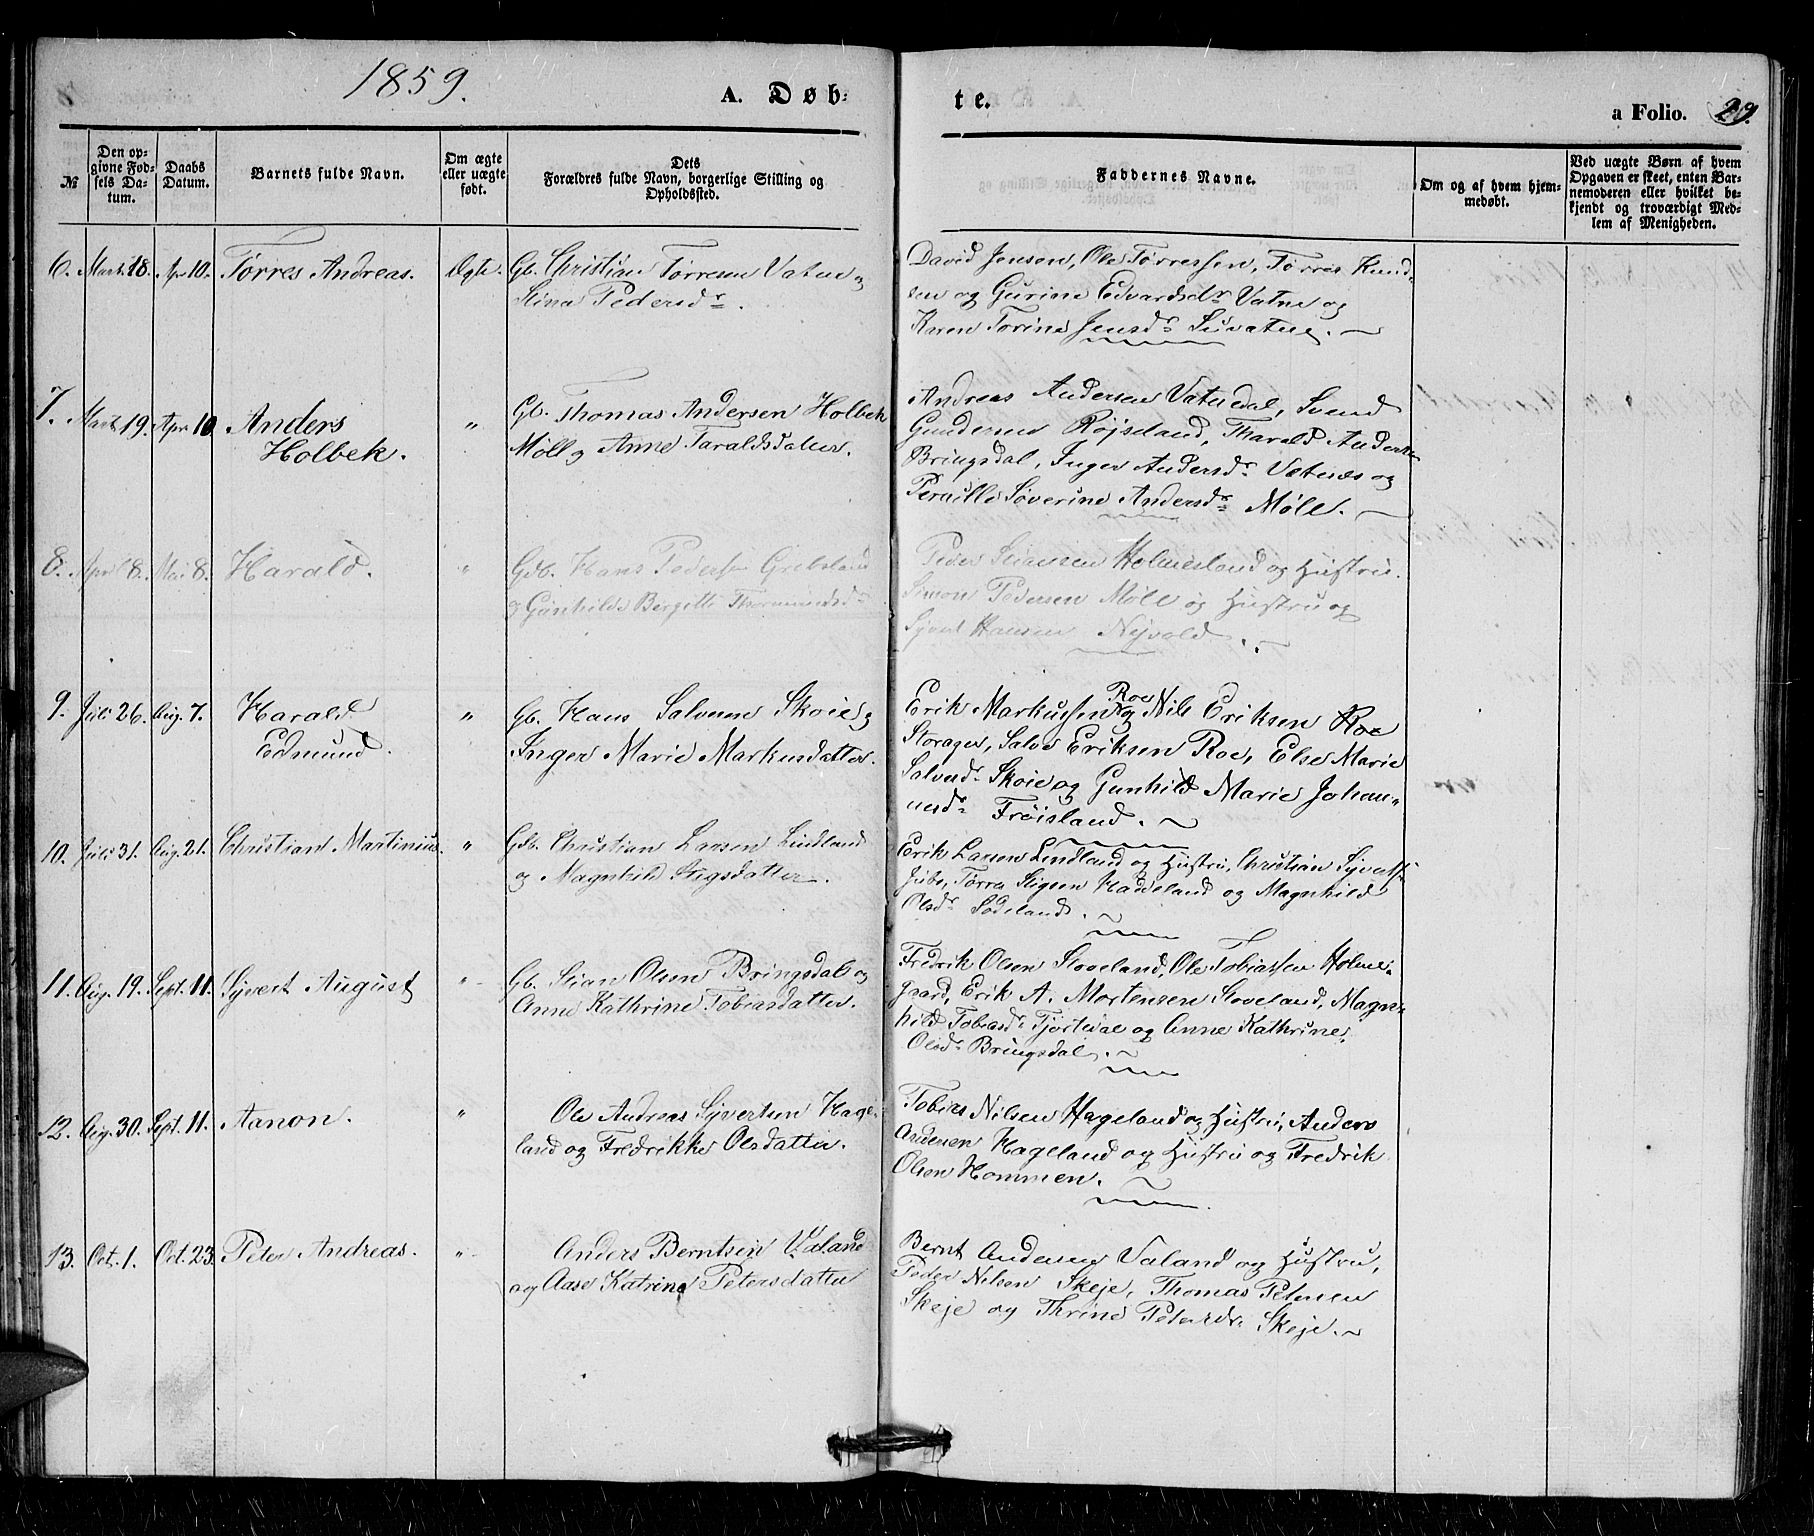 1859.
A. Døb-
te.
a Folio. 29.
№
Den opgivne Fødsels Datum.
Daabs Datum.
Barnets fulde Navn.
Om ægte eller uægte født.
Dets Forældres fulde Navn, borgerlige Stilling og Opholdssted.
Faddernes Navne.
Om og af hvem hjemmedøbt.
Ved uægte Børn af hvem Opgaven er skeet, enten Barnemoderen eller hvilket bekjendt og troværdigt Medlem af Menigheden.
6. Marts 18. Apr 10. Tørres Andreas. Ægte. Gb. Christian Tørresen Vatne og
Stina Pedersdr.
David Jensen, Ole Tørressen, Tørres Knud-
sen og Gurine Edvardsdr Vatne og
Karen Torine Jensdr
7. Marts 19. Apr 10. Anders
Holbek.
" Gb. Thomas Andersen Holbek
Møll og Anne Taraldsdatter.
Andreas Andersen Vatnedal, Svend
Gundersen Røjseland, Tharald Anders
Bringsdal, Inger Andersdr og
Pernille Severine Andersdr Møll.
8. April 8. Mai 8. Harald.
" Gdb. Hans Pedersen Grebsland
og Gunhilde Birgitte
Peder Holmesland og Hustru.
Simon Pedersen Møll og Hustru og
Syvert Hansen
9. Juli 26. Aug. 7. Harald
Edmund.
" Gb. Hans Salvesen Skoie og
Inger Marie Markusdatter.
Erik Markussen Roe og Nils Eriksen Roe
Storager, Salve Eriksen Roe, Else Marie
Salvesdr Skoie og Gunhild Marie Johan-
nesdr Frøisland.
10. Juli 31. Aug. 21. Christian Martinius. " Gdb. Christian Larsen Lindland
og Magnhild Stigsdatter.
Erik Larsen Lindland og Hustru, Christian Syverts
Jube, Tørres Stigsen Haddeland og Magnhild
Olsdr Sødeland.
11. Aug. 19. Sept. 11. Syvert August " Gb. Stian Olsen Bringsdal og
Anne Kathrine Tobiasdatter.
Fredrik Olsen Stoveland, Ole Tobiassen Holme-
gaard, Erik A. Mortensen Stoveland, Magn-
hild Tobiasdr og Anne Kathrine
Olsdr Bringsdal.
12. Aug. 30. Sept. 11. Aanon. " Ole Andreas Syvertsen Hage-
land og Fredrikke Olsdatter.
Tobias Nilsen Hageland og Hustru, Anders
Andersen Hageland og Hustru og Fredrik
Olsen Hommen.
13. Oct. 1. Oct. 23. Peter Andreas. " Anders Berntsen Valand
og Aase Katrine Petersdatter
Bernt Andersen Valand og Hustru,
Peder Nilsen Skeje, Thomas Petersen
Skeje og Thrine Petersdr Skeje.